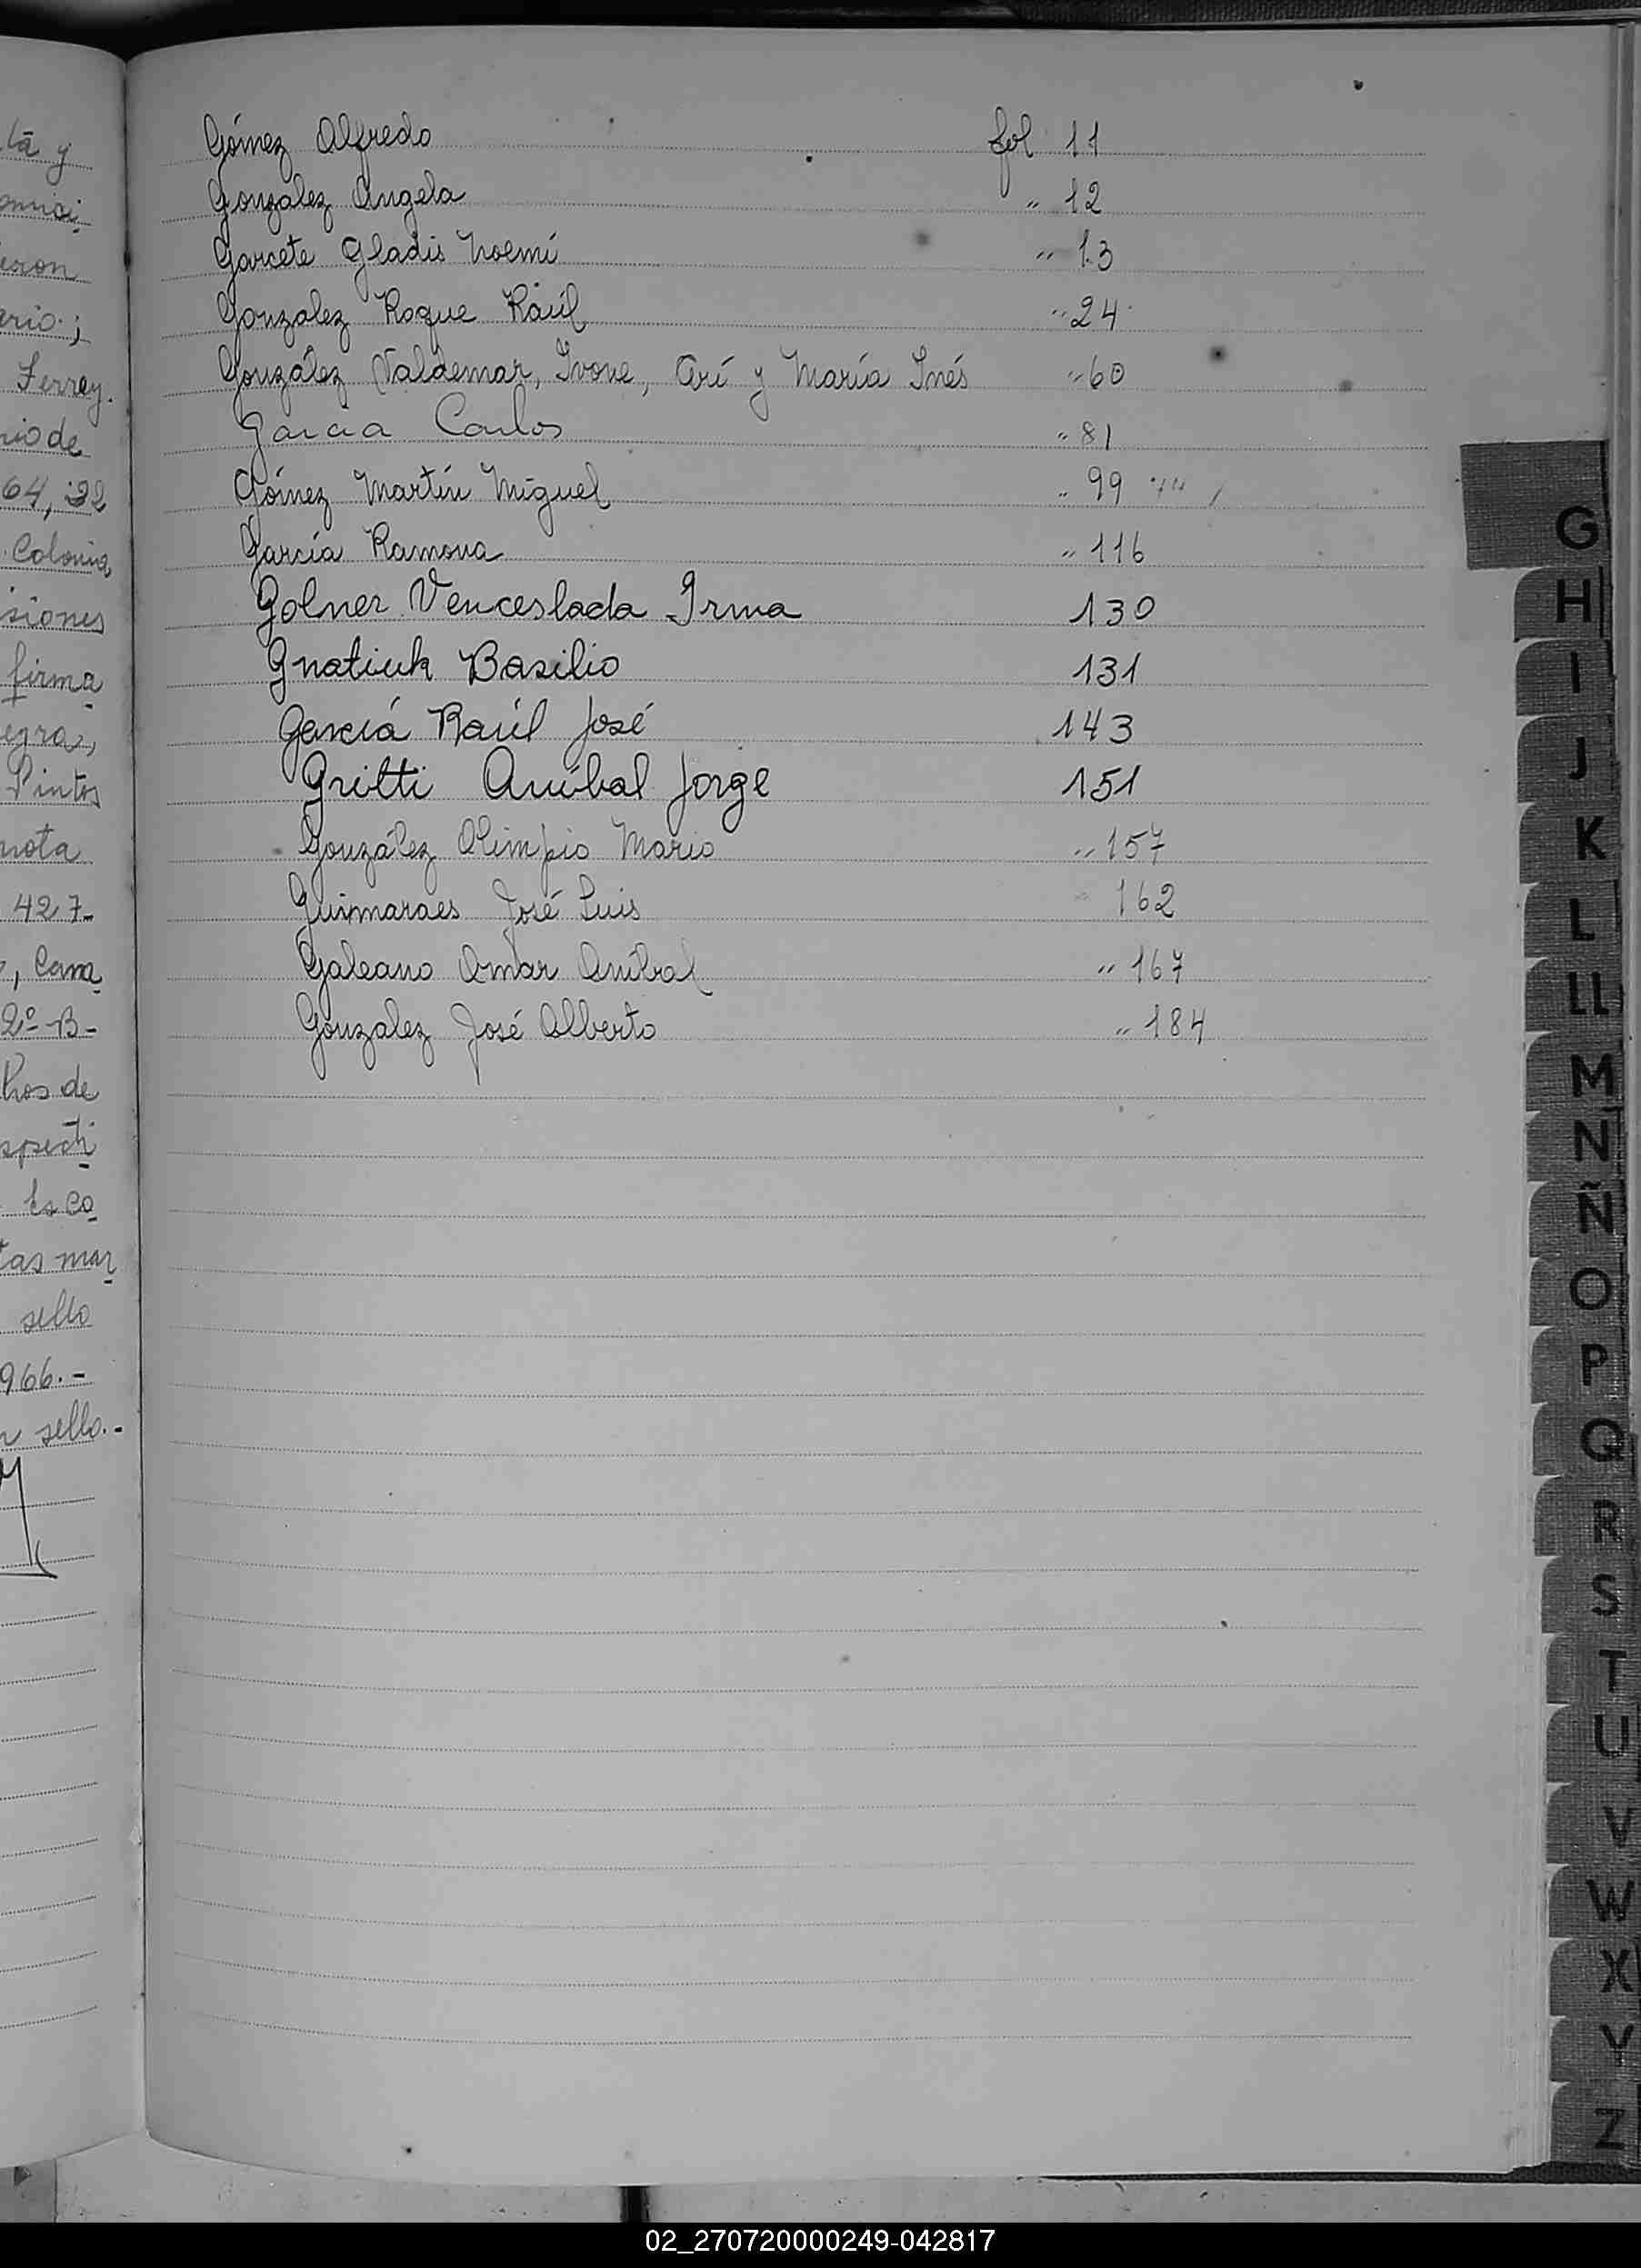 tā y
Gómez Alfredo fol 11
Gonzalez Angela " 12
eron
Garcete Gladis Noemí " 13
ario.;
Gonzalez Roque Raúl " 24
Ferrey.
González Valdemar, Ivone, Arí y María Inés " 60
rio de
García Carlos " 81
64, 32
Gómez Martín Miguel " 99
Colonia
García Ramona " 116
isiones
Golner Venceslada Irma 130
firma
Gnatiuk Basilio 131
egra,
Garciá Raúl José 143
Pintos
Gritti Aníbal Jorge 151
nota
González Olimpio Mario " 157
427-
Guimaraes José Luis " 162
, Cam
Galeano Omar Anibal " 167
2º-B-
Gonzalez José Alberto " 184
hos de
specti
Es Co
tas mar
sello
966.-
sello.-
G
H
I
J
K
L
LL
M
N
Ñ
O
P
Q
R
S
T
U
V
W
X
Y
Z
02_270720000249-042817